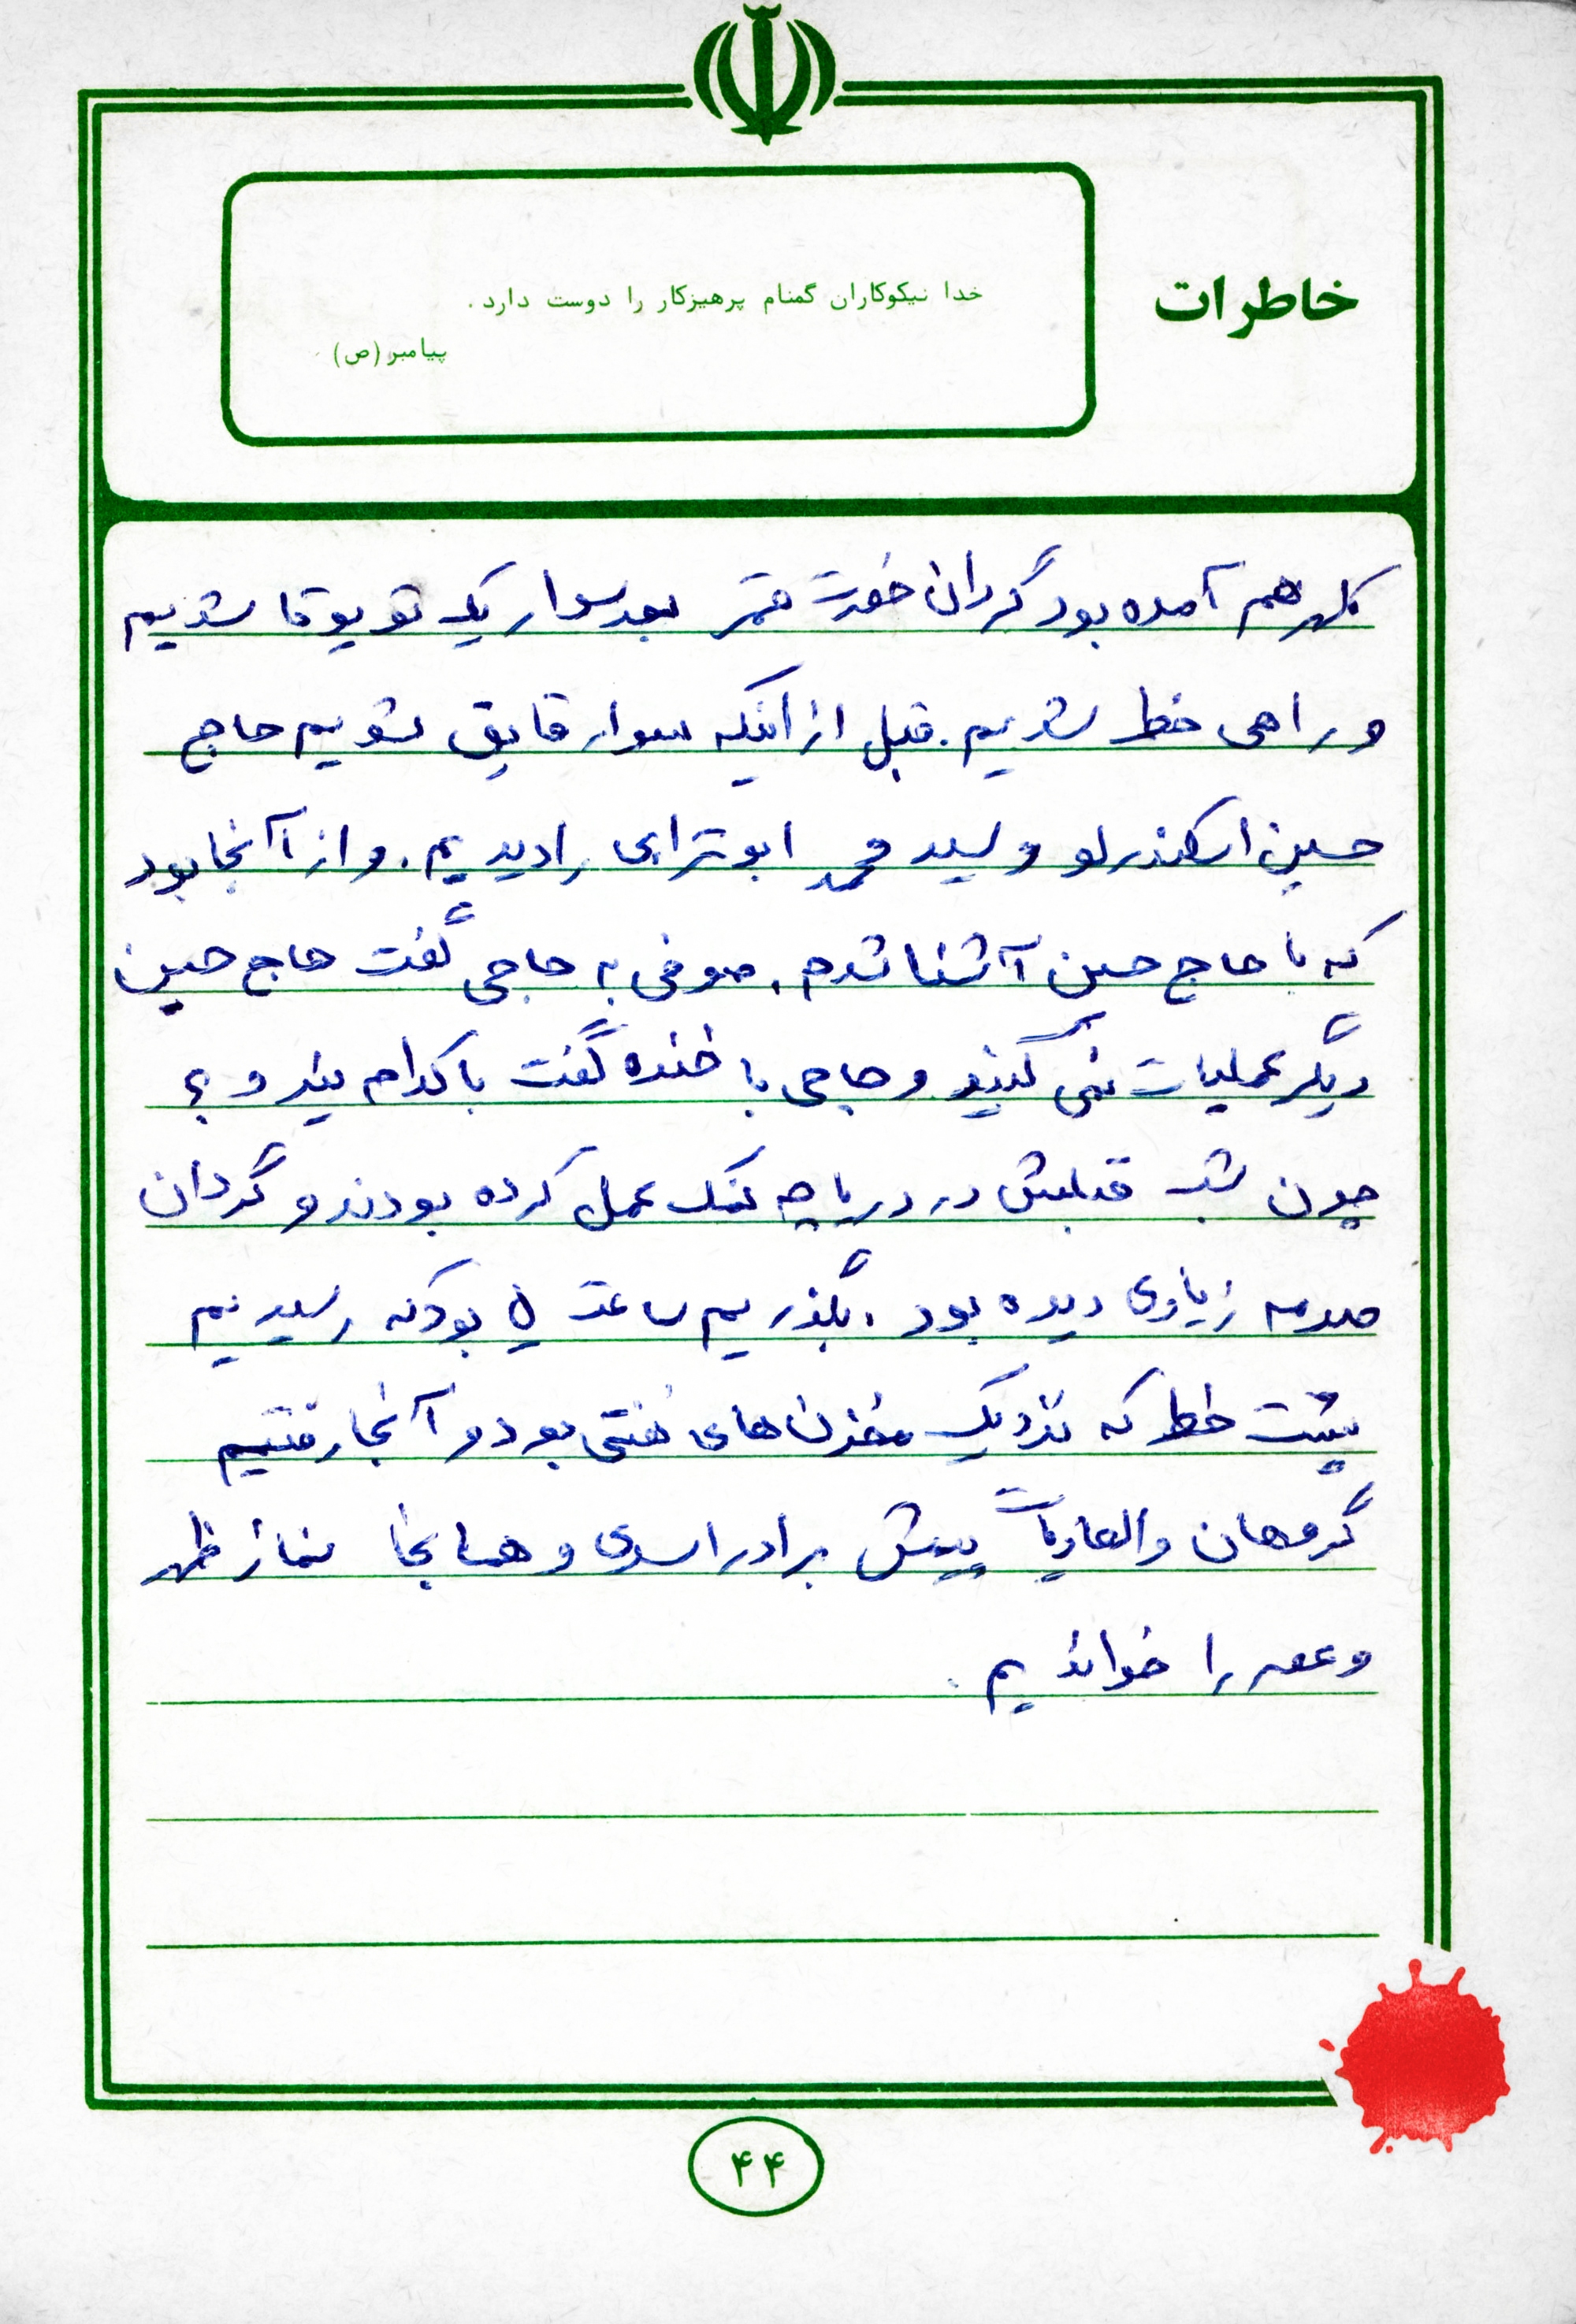 خاطرات
خدا نیکوکاران گمنام پرهیزکار را دوست دارد.
پیامبر (ص)
کلهر هم آمده بود گردان حضرت قمر بعد سوار یک تویوتا شدیم
و راهی خط شدیم. قبل از اینکه سوار قایق شویم حاج
حسین اسکندرلو و سید محمد ابوترابی را دیدیم. و از آنجا بود
که با حاج حسین آشنا شدم. صوفی به حاجی گفت حاج حسین
دیگر عملیات نمی کنید و حاجی با خنده گفت با کدام نیرو؟
چون شب قبلش در دریاچه نمک عمل کرده بودند و گردان
صدمه زیادی دیده بود. بگذریم ساعت بود که رسیدیم
پشت خط که نزدیک مخزن های نفتی بود و آنجا رفتیم
گروهان والعادیات پیش برادر اسدی و همانجا نماز ظهر
و عصر را خواندیم.
۴۴